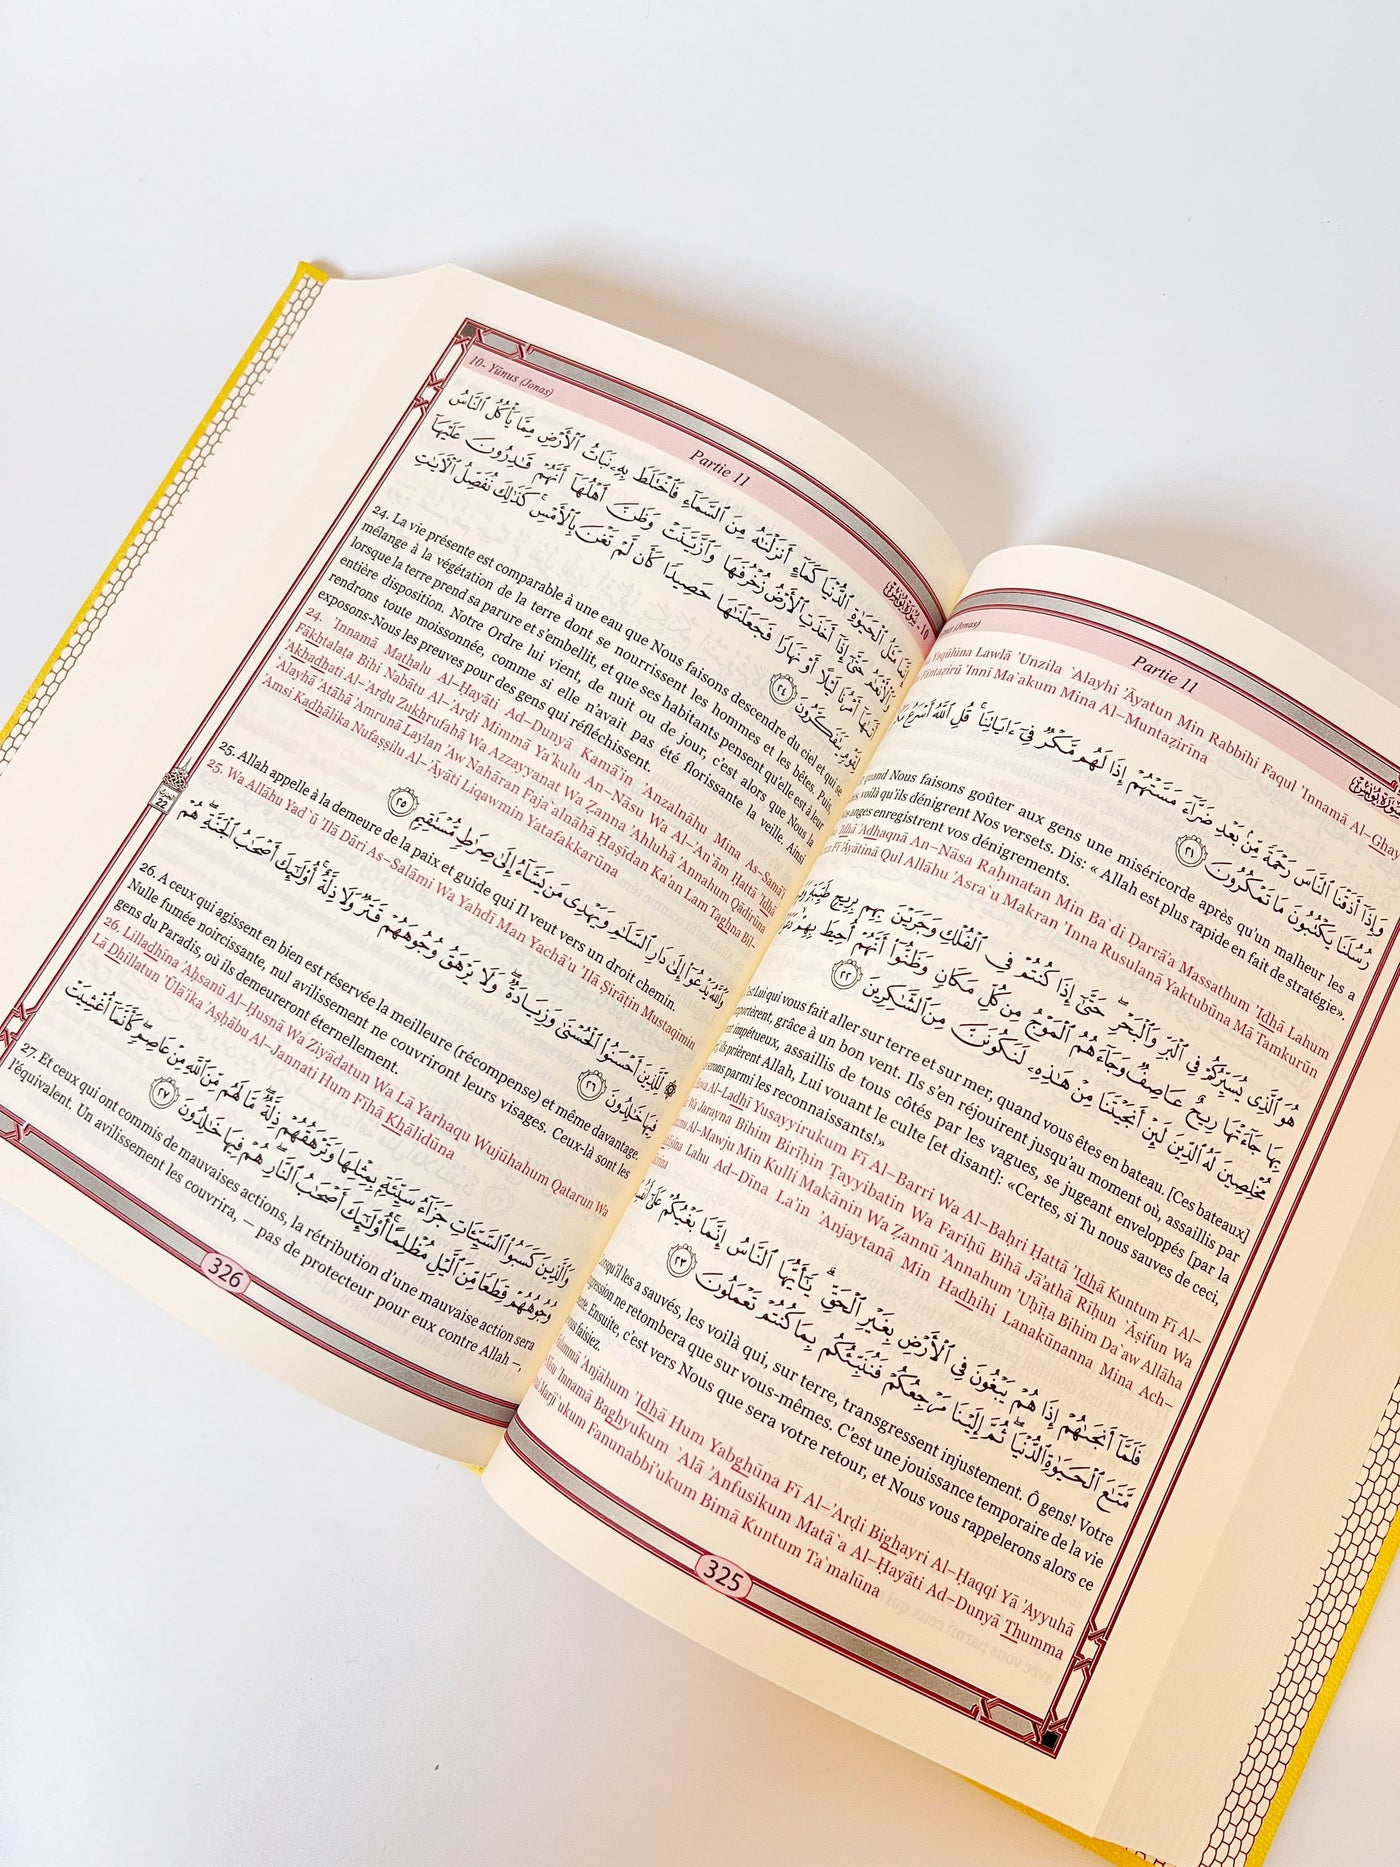 (Jonas) Partie 11
Yaqūlūna Lawlā 'Unzila `Alayhi 'Āyatun Min Rabbihi Faqul 'Innamā
Fāntaẓirū 'Innī Ma`akum Mina Al–Muntaẓirīna
وَإِذَآ أَذَقْنَا ٱلنَّاسَ رَحْمَةً مِّنۢ بَعْدِ ضَرَّآءَ مَسَّتْهُمْ إِذَا لَهُم مَّكْرٌ فِىٓ ءَايَاتِنَا ۚ قُلِ ٱللَّهُ أَسْرَعُ
رُسُلَنَا يَكْتُبُونَ مَا تَمْكُرُونَ ٢١
quand Nous faisons goûter aux gens une miséricorde après qu'un malheur les a
voilà qu'ils dénigrent Nos versets. Dis: « Allah est plus rapide en fait de stratégie».
anges enregistrent vos dénigrements.
'Idhā 'Adhaqnā An–Nāsa Raḥmatan Min Ba`di Ḍarrā'a Massathum 'Idhā Lahum
Fī 'Āyātinā Qul Allāhu 'Asra`u Makran 'Inna Rusulanā Yaktubūna Mā Tamkurūn
هُوَ ٱلَّذِى يُسَيِّرُكُمْ فِى ٱلْبَرِّ وَٱلْبَحْرِ ۖ حَتَّىٰٓ إِذَا كُنتُمْ فِى ٱلْفُلْكِ وَجَرَيْنَ بِهِم بِرِيحٍ طَيِّبَةٍ
بِهَا جَآءَتْهَا رِيحٌ عَاصِفٌ وَجَآءَهُمُ ٱلْمَوْجُ مِن كُلِّ مَكَانٍ وَظَنُّوٓا۟ أَنَّهُمْ أُحِيطَ بِهِمْ
مُخْلِصِينَ لَهُ ٱلدِّينَ لَئِنْ أَنجَيْتَنَا مِنْ هَٰذِهِۦ لَنَكُونَنَّ مِنَ ٱلشَّٰكِرِينَ ٢٢
Lui qui vous fait aller sur terre et sur mer, quand vous êtes en bateau. [Ces bateaux]
grâce à un bon vent. Ils s'en réjouirent jusqu'au moment où, assaillis par
impétueux, assaillis de tous côtés par les vagues, se jugeant enveloppés [par la
ils prièrent Allah, Lui vouant le culte [et disant]: «Certes, si Tu nous sauves de ceci,
parmi les reconnaissants!»
Al–Ladhī Yusayyirukum Fī Al–Barri Wa Al–Baḥri Ḥattá 'Idhā Kuntum Fī Al–
Wa Jarayna Bihim Birīḥin Ṭayyibatin Wa Fariḥū Bihā Jā'athā Rīḥun `Āṣifun Wa
Al–Mawju Min Kulli Makānin Wa Ẓannū 'Annahum 'Uḥīṭa Bihim Da`aw Allāha
Lahu Ad–Dīna La'in 'Anjaytanā Min Hadhihi Lanakūnanna Mina Ach–
فَلَمَّآ أَنجَىٰهُمْ إِذَا هُمْ يَبْغُونَ فِى ٱلْأَرْضِ بِغَيْرِ ٱلْحَقِّ ۗ يَٰٓأَيُّهَا ٱلنَّاسُ إِنَّمَا بَغْيُكُمْ عَلَىٰٓ
مَّتَٰعَ ٱلْحَيَوٰةِ ٱلدُّنْيَا ۖ ثُمَّ إِلَيْنَا مَرْجِعُكُمْ فَنُنَبِّئُكُم بِمَا كُنتُمْ تَعْمَلُونَ ٢٣
les a sauvés, les voilà qui, sur terre, transgressent injustement. Ô gens! Votre
ne retombera que sur vous-mêmes. C'est une jouissance temporaire de la vie
Ensuite, c'est vers Nous que sera votre retour, et Nous vous rappelerons alors ce
faisiez.
'Anjāhum 'Idhā Hum Yabghūna Fī Al–'Arḍi Bighayri Al–Ḥaqqi Yā 'Ayyuhā
'Innamā Baghyukum `Alá 'Anfusikum Matā`a Al–Ḥayāti Ad–Dunyā Thumma
Marji`ukum Fanunabbi'ukum Bimā Kuntum Ta`malūna
325
10- Yūnus (Jonas) Partie 11
إِنَّمَا مَثَلُ ٱلْحَيَوٰةِ ٱلدُّنْيَا كَمَآءٍ أَنزَلْنَٰهُ مِنَ ٱلسَّمَآءِ فَٱخْتَلَطَ بِهِۦ نَبَاتُ ٱلْأَرْضِ مِمَّا يَأْكُلُ ٱلنَّاسُ
وَٱلْأَنْعَٰمُ حَتَّىٰٓ إِذَآ أَخَذَتِ ٱلْأَرْضُ زُخْرُفَهَا وَٱزَّيَّنَتْ وَظَنَّ أَهْلُهَآ أَنَّهُمْ قَٰدِرُونَ عَلَيْهَآ
أَتَىٰهَآ أَمْرُنَا لَيْلًا أَوْ نَهَارًا فَجَعَلْنَٰهَا حَصِيدًا كَأَن لَّمْ تَغْنَ بِٱلْأَمْسِ ۚ كَذَٰلِكَ نُفَصِّلُ ٱلْءَايَٰتِ
لِقَوْمٍ يَتَفَكَّرُونَ ٢٤
24. La vie présente est comparable à une eau que Nous faisons descendre du ciel et qui se
mélange à la végétation de la terre dont se nourrissent les hommes et les bêtes. Puis,
lorsque la terre prend sa parure et s'embellit, et que ses habitants pensent qu'elle est à leur
entière disposition. Notre Ordre lui vient, de nuit ou de jour, c'est alors que Nous la
rendrons toute moissonnée, comme si elle n'avait pas été florissante la veille. Ainsi
exposons-Nous les preuves pour des gens qui réfléchissent.
24. 'Innamā Mathalu Al–Ḥayāti Ad–Dunyā Kamā'in 'Anzalnāhu Mina As–Samā'i
Fākhtalaṭa Bihi Nabātu Al–'Arḍi Mimmā Ya'kulu An–Nāsu Wa Al–'An`ām Ḥattá 'Idhā
'Akhadhati Al–'Arḍu Zukhrufahā Wa Azzayyanat Wa Ẓanna 'Ahluhā 'Annahum Qādirūna
`Alayhā 'Atāhā 'Amrunā Laylan 'Aw Nahāran Faja`alnāhā Ḥaṣīdan Ka'an Lam Taghna Bil–
'Amsi Kadhālika Nufaṣṣilu Al–'Āyāti Liqawmin Yatafakkarūna
وَٱللَّهُ يَدْعُوٓا۟ إِلَىٰ دَارِ ٱلسَّلَٰمِ وَيَهْدِى مَن يَشَآءُ إِلَىٰ صِرَٰطٍ مُّسْتَقِيمٍ ٢٥
25. Allah appelle à la demeure de la paix et guide qui Il veut vers un droit chemin.
25. Wa Allāhu Yad`ū 'Ilá Dāri As–Salāmi Wa Yahdī Man Yachā'u 'Ilá Ṣirāṭin Mustaqīmin
۞ لِّلَّذِينَ أَحْسَنُوا۟ ٱلْحُسْنَىٰ وَزِيَادَةٌ ۖ وَلَا يَرْهَقُ وُجُوهَهُمْ قَتَرٌ وَلَا ذِلَّةٌ ۚ أُو۟لَٰٓئِكَ أَصْحَٰبُ ٱلْجَنَّةِ ۖ هُمْ
فِيهَا خَٰلِدُونَ ٢٦
26. A ceux qui agissent en bien est réservée la meilleure (récompense) et même davantage.
Nulle fumée noircissante, nul avilissement ne couvriront leurs visages. Ceux-là sont les
gens du Paradis, où ils demeureront éternellement.
26. Lilladhīna 'Aḥsanū Al–Ḥusná Wa Ziyādatun Wa Lā Yarhaqu Wujūhahum Qatarun Wa
Lā Dhillatun 'Ūlā'ika 'Aṣḥābu Al–Jannati Hum Fīhā Khālidūna
وَٱلَّذِينَ كَسَبُوا۟ ٱلسَّيِّـَٔاتِ جَزَآءُ سَيِّئَةٍۭ بِمِثْلِهَا وَتَرْهَقُهُمْ ذِلَّةٌ ۖ مَّا لَهُم مِّنَ ٱللَّهِ مِنْ عَاصِمٍ ۖ كَأَنَّمَآ أُغْشِيَتْ
وُجُوهُهُمْ قِطَعًا مِّنَ ٱلَّيْلِ مُظْلِمًا ۚ أُو۟لَٰٓئِكَ أَصْحَٰبُ ٱلنَّارِ ۖ هُمْ فِيهَا خَٰلِدُونَ ٢٧
27. Et ceux qui ont commis de mauvaises actions, la rétribution d'une mauvaise action sera
l'équivalent. Un avilissement les couvrira, — pas de protecteur pour eux contre Allah –,
22
326